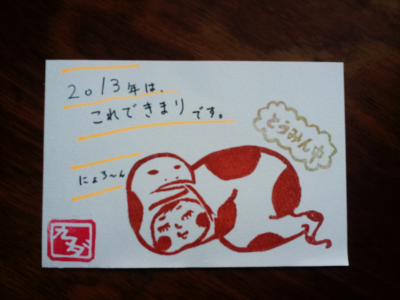 2013年は、
これできまり
です。
とらみんゆ
にょろ〜ん